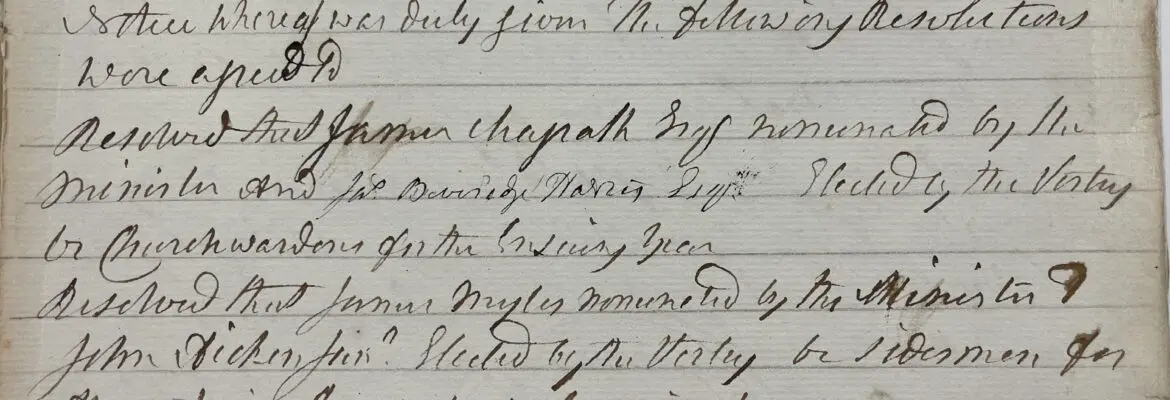 Notice whereof was duly given the following Resolutions
were agreed to
Resolved that James Esqr nominated by the
Minister And Jas. Beveridge Harris Esqr Elected by the Vestry
be Churchwardens for the Ensuing Year
Resolved that James Myles nominated by the Minister &
John Dicken Junr. Elected by the Vestry be sidesmen for